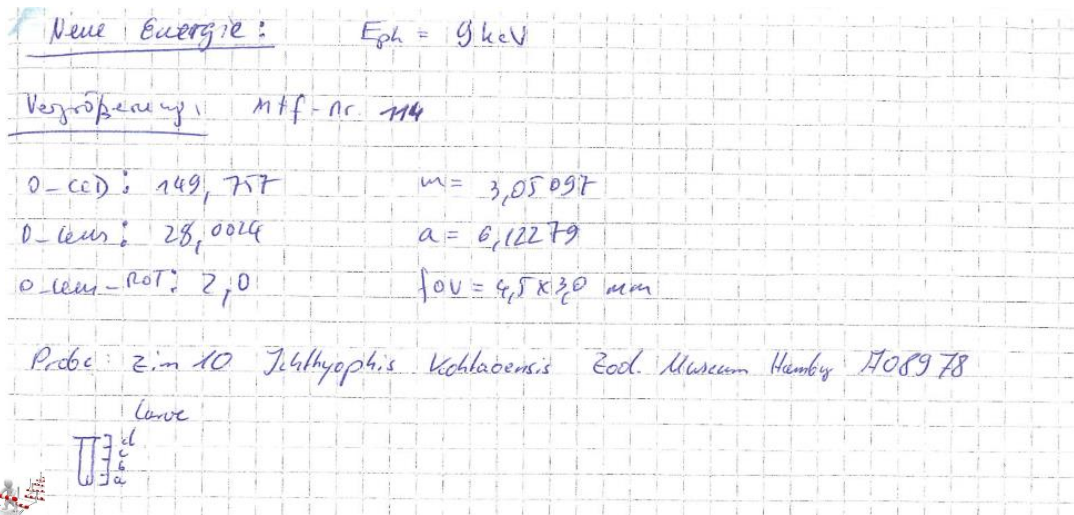 Neue Energie: Eph = 9 keV
Vergrößerung: Mtf-nr. 114
O-CCD: 149,757 m = 3,05097
O-lens: 28,0024 a = 6,12279
O-lens-ROT: 2,0 fov = 4,5 x 3,0 mm
Probe: zim 10 Ichthyophis Kohtaoensis Zool. Museum Hamburg A08978
Larve
d
c
b
a